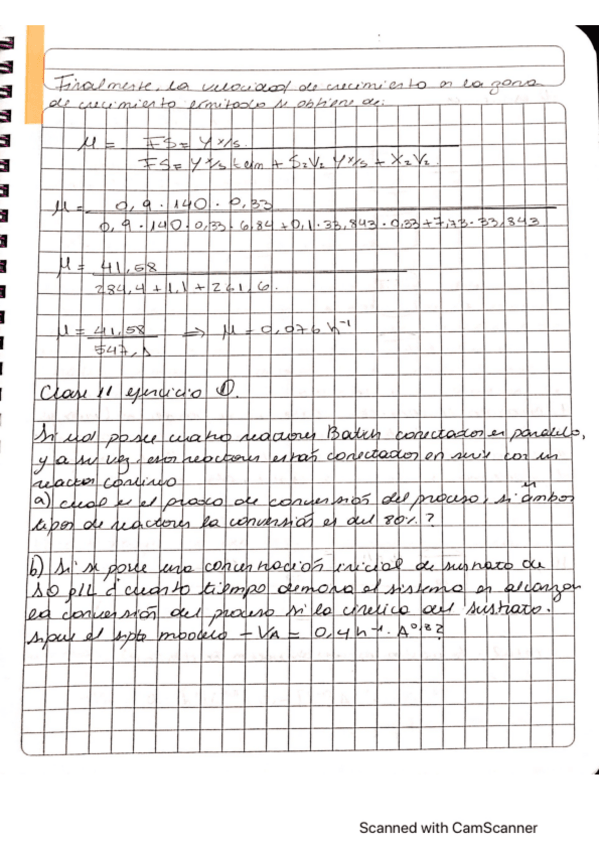 Finalmente, la velocidad de crecimiento en la zona
de crecimiento limitado se obtiene de:
μ = FSe Yx/s
FSe Yx/s tlim + S2V2 Yx/s + X2V2
μ = 0,9 · 140 · 0,33
0,9 · 140 · 0,33 · 6,84 + 0,1 · 33,843 · 0,33 + 7,73 · 33,843
μ = 41,58
284,4 + 1,1 + 261,6.
μ = 41,58 ⇒ μ = 0,076 h⁻¹
547,1
Clase 11 ejercicio ①.
Si ud posee cuatro reactores Batch conectados en paralelo,
y a su vez, estos reactores están conectados en serie con un
reactor continuo
a) cual es el grado de conversión del proceso, si ambos
tipos de reactores la conversión es del 80%?
b) Si se posee una concentración inicial de sustrato de
50 g/L ¿ cuanto tiempo demora el sistema en alcanzar
la conversión del proceso si la cinética del sustrato.
sigue el sgte modelo -VA = 0,4 h⁻¹ · A^0,8?
Scanned with CamScanner